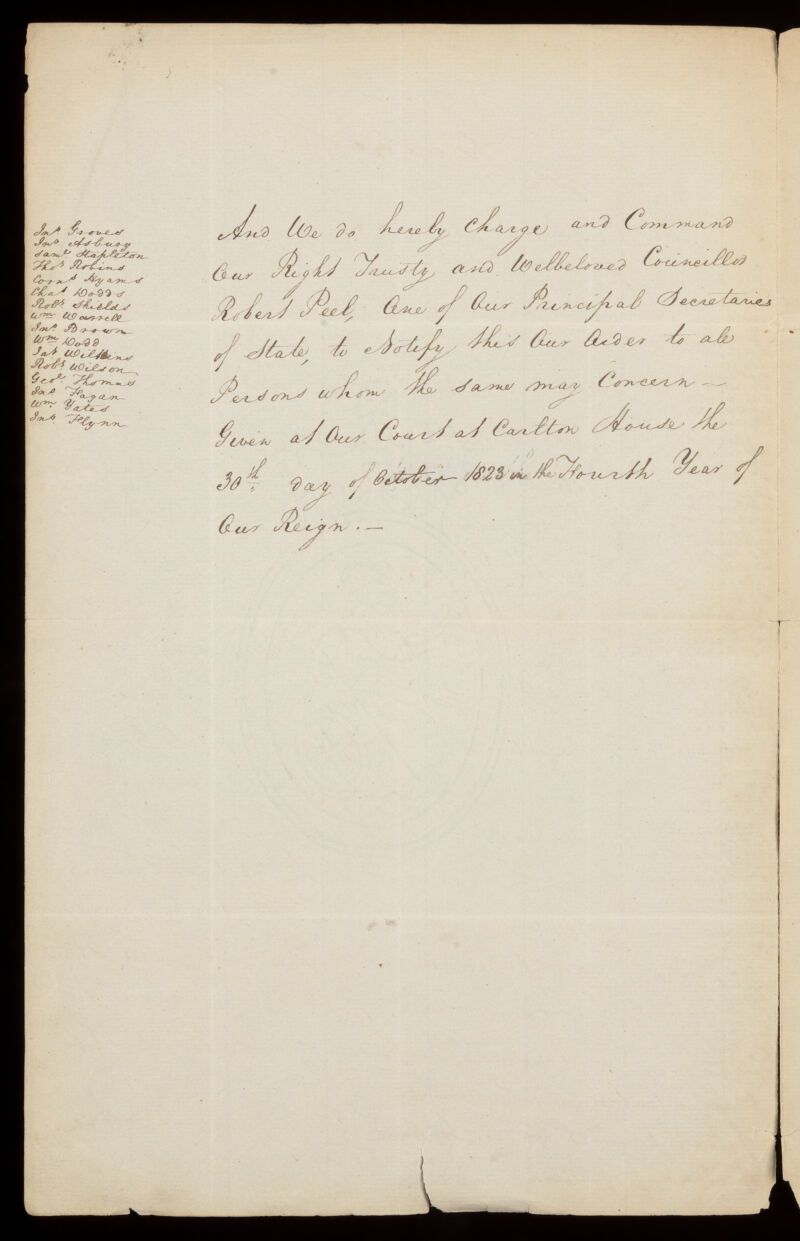 Jno. Groves
Jno. Asbury
Saml. Stapleton
Thos. Robins
Corns. Hyams
Chas. Dodds
Robt. Shields
Wm. Warrell
Jno. Brown
Wm. Dodd
Jas. Wilkens
Robt. Wilson
Geoe. Thomas
Jno. Fagan
Wm. Yates
Jno. Flynn
And We do hereby Charge and Command
Our Right Trusty and Welbeloved Councillor
Robert Peel, One of Our Principal Secretaries
of State, to Notify this Our Order to all
Persons whom the same may Concern —
Given at Our Court at Carlton House the
30th. day of October 1823 in the Fourth Year of
Our Reign. —